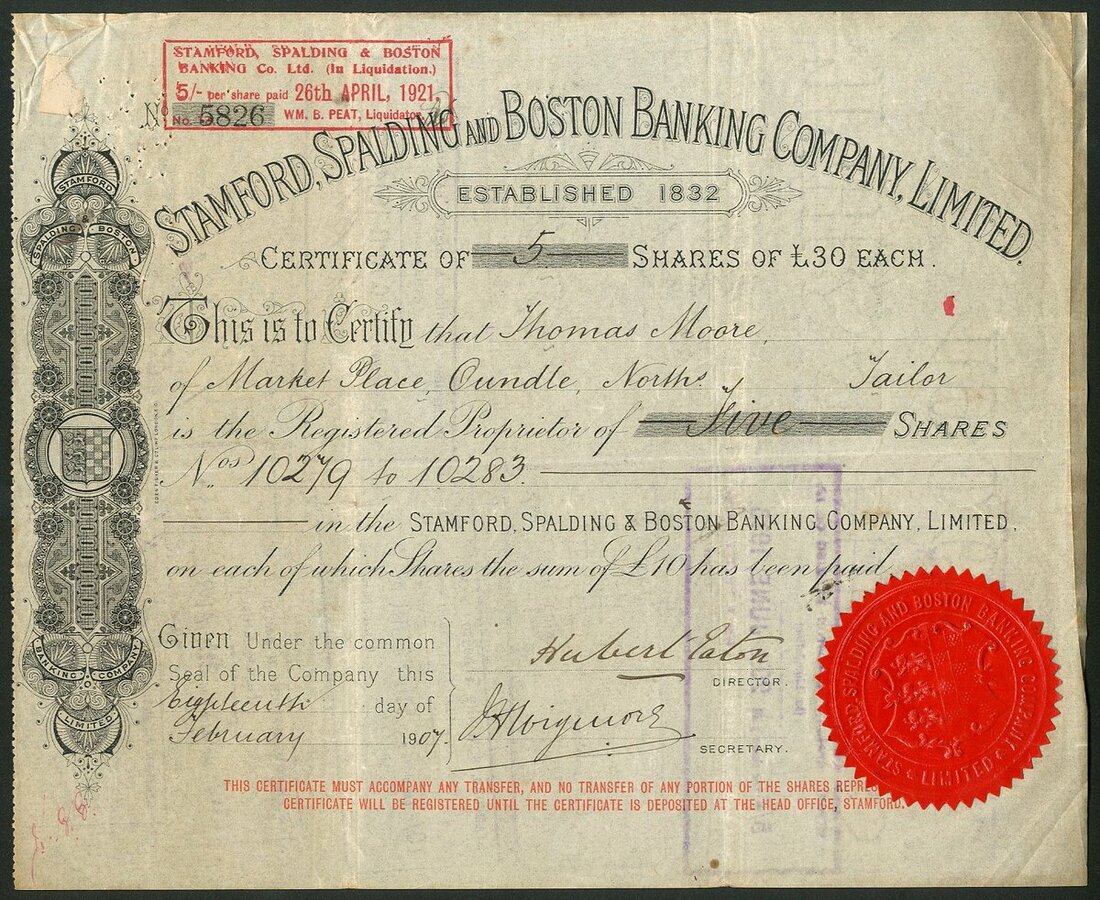 STAMFORD, SPALDING & BOSTON
BANKING Co. Ltd. (In Liquidation.)
5/- per share paid 26th APRIL, 1921.
No. WM. B. PEAT, Liquidator.
No. 5826
STAMFORD, SPALDING AND BOSTON BANKING COMPANY, LIMITED.
ESTABLISHED 1832
CERTIFICATE OF 5 SHARES OF £30 EACH.
This is to Certify that Thomas Moore,
of Market Place, Oundle, Norths. Tailor
is the Registered Proprietor of Five SHARES
Nos. 10279 to 10283.
in the STAMFORD, SPALDING & BOSTON BANKING COMPANY, LIMITED,
on each of which Shares the sum of £10 has been paid.
Given Under the common
Seal of the Company this
Eighteenth day of
February 1907.
Hubert Eaton
DIRECTOR.
SECRETARY.
THIS CERTIFICATE MUST ACCOMPANY ANY TRANSFER, AND NO TRANSFER OF ANY PORTION OF THE SHARES
CERTIFICATE WILL BE REGISTERED UNTIL THE CERTIFICATE IS DEPOSITED AT THE HEAD OFFICE, STAMFORD.
STAMFORD
SPALDING & BOSTON
BANKING COMPANY
LIMITED
STAMFORD, SPALDING AND BOSTON BANKING COMPANY
LIMITED